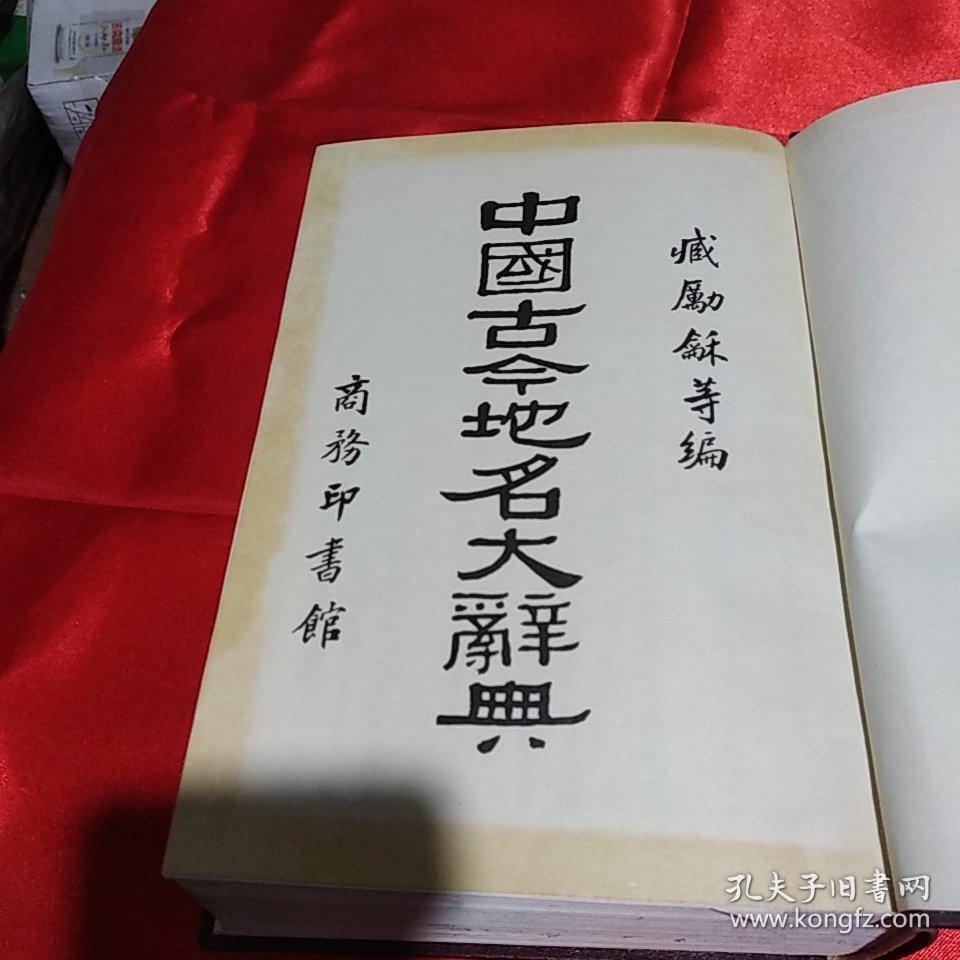 臧勵龢等编
中國古今地名大辭典
商務印書館
孔夫子旧書网
www.kongfz.com